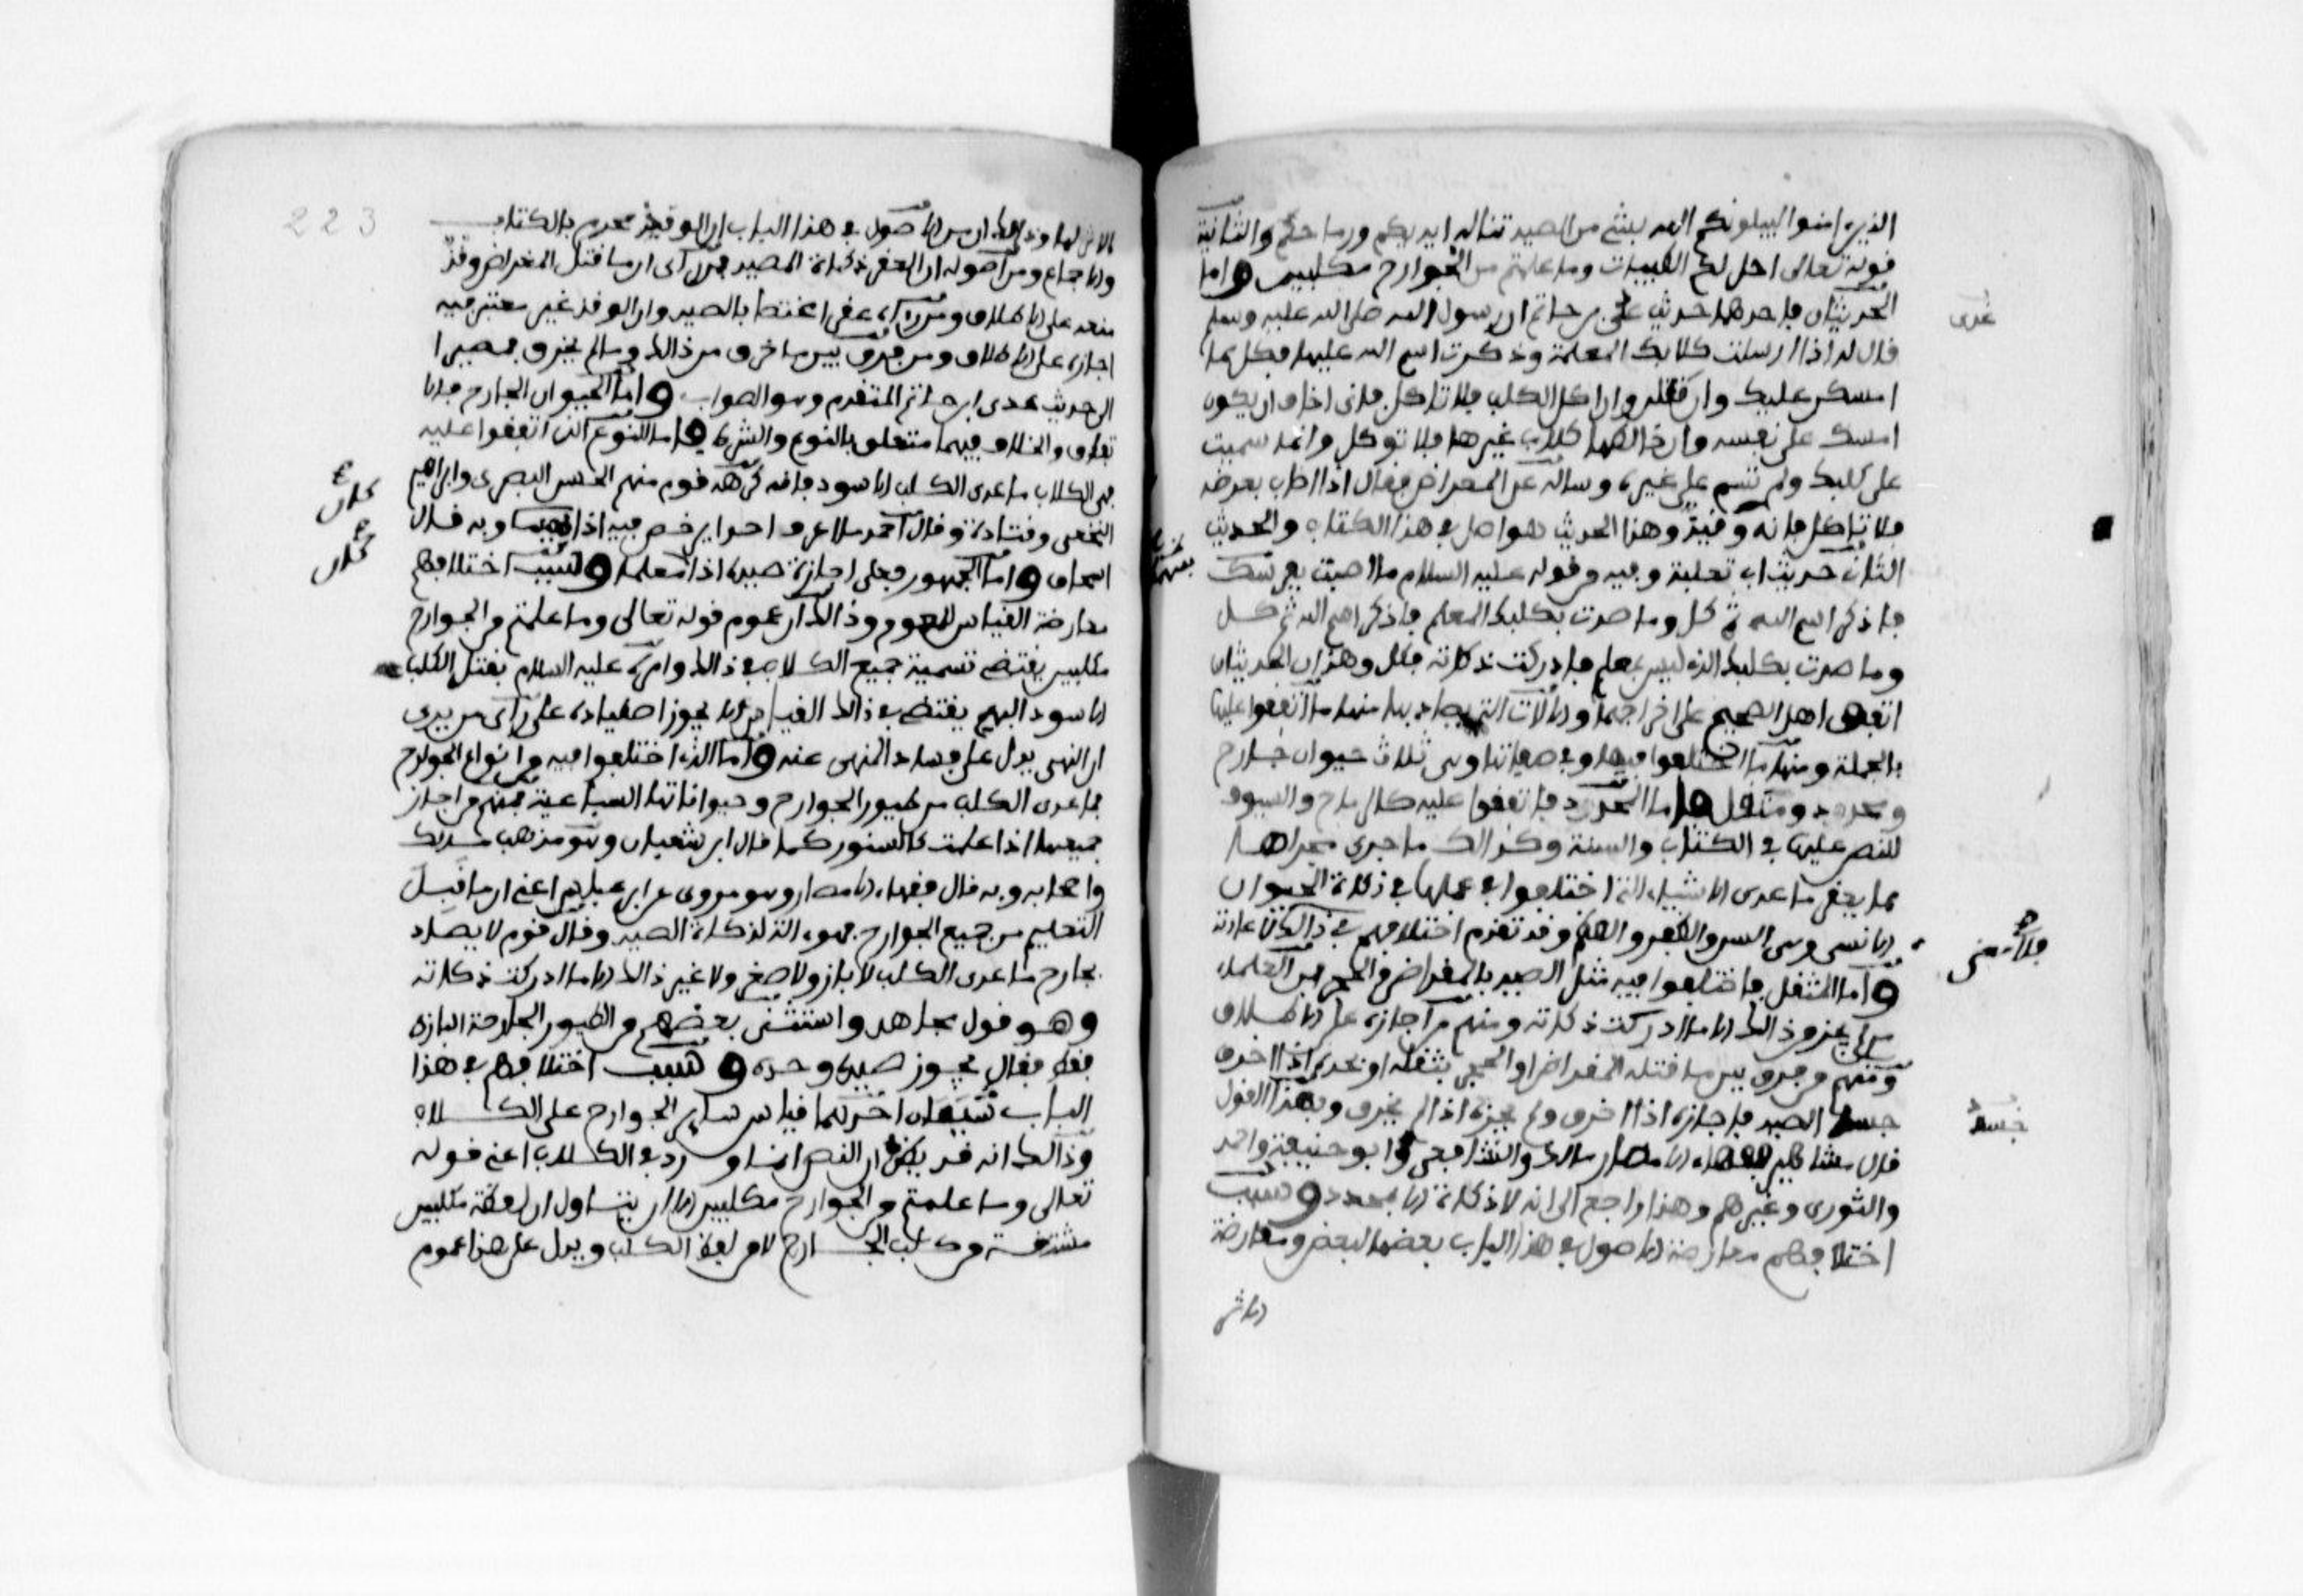 الذين امنوا ليبلونكم الله بشيء من الصيد تناله ايديكم ورماحكم والثانية
قوله تعالى احل لكم الطيبات وما علمتم من الجوارح مكلبين واما
الحديثان فاحدهما حديث عدي بن حاتم ان رسول الله صلى الله عليه وسلم
عدى
قال له اذا ارسلت كلابك المعلمة وذكرت اسم الله عليها فكل مما
امسكن عليك وان قتلن وان اكل الكلب فلا تاكل فاني اخاف ان يكون
امسك على نفسه وان خالطها كلاب غيرها فلا توكل وانما سميت
على كلبك ولم تسم على غيره وساله عن المعراض فقال اذا اصاب بعرضه
فلا تاكل فانه وقيذ وهذا الحديث هو اصل في هذا الكتاب والحديث
الثاني حديث ابي ثعلبة وفيه من قوله عليه السلام ما اصبت بقوسك
فاذكر اسم الله ثم كل وما صدت بكلبك المعلم فاذكر اسم الله ثم كل
وما صدت بكلبك الذي ليس بمعلم فادركت ذكاته فكل وهذان الحديثان
اتفق اهل الصحيح على اخراجهما والالات التي يصاد بها منها ما اتفقوا عليها
بالجملة ومنها ما اختلفوا فيها وفي صفاتها وهي ثلاث حيوان جارح
ومحدد ومثقل فاما المحدد فاتفقوا عليه كالرماح والسيوف
للنص عليها في الكتاب والسنة وكذالك ما جرى مجراها
مما يعقر ما عدى الاشياء التي اختلفوا في عملها في ذكاة الحيوان
الانسي وهي السن والظفر والعظم وقد تقدم اختلافهم في ذالك فلا معنى لاعادته
فلا معنى
واما المثقل فاختلفوا فيه مثل الصيد بالمعراض والحجر فمن العلماء
من لم يجز من ذالك الا ما ادركت ذكاته ومنهم من اجازه على الاطلاق
ومنهم من فرق بين ما قتله المعراض او الحجر بثقله او بحده اذا خرق
جسد الصيد فاجازه اذا خرق ولم يجزه اذا لم يخرق وبهذا القول
جسد
قال مشاهير فقهاء الامصار مالك والشافعي وابو حنيفة واحمد
والثوري وغيرهم وهذا راجع الى انه لا ذكاة الا بمحدد وسبب
اختلافهم معارضة الاصول في هذا الباب بعضها لبعض ومعارضة
الاثر
223
الاثر لها وذالك ان من الاصول في هذا الباب ان الوقيذ محرم بالكتاب
والاجماع ومن اصوله ان العقر ذكاة الصيد فمن راى ان ما قتل المعراض وقيذ
منعه على الاطلاق ومن راه عقرا مختصا بالصيد وان الوقذ غير معتبر فيه
اجازه على الاطلاق ومن فرق بين ما خرق من ذالك وما لم يخرق فمصيرا
الى حديث عدى ابن حاتم المتقدم وهو الصواب واما الحيوان الجارح فالا
تفاق والخلاف فيها متعلق بالنوع والشرط فاما النوع الذي اتفقوا عليه
فهي الكلاب ما عدى الكلب الاسود فانه كرهه قوم منهم الحسن البصري وابراهيم
النخعي وقتادة وقال احمد ما اعرف احدا يرخص فيه اذا بهيما وبه قال
كان
اسحاق واما الجمهور فعلى اجازة صيده اذا معلما وسبب اختلافهم
كان
معارضة القياس للعموم وذالك ان عموم قوله تعالى وما علمتم من الجوارح
مكلبين يقتضي تسمية جميع الكلاب في ذالك وامره عليه السلام بقتل الكلب
الاسود البهيم يقتضي في ذالك القياس الا يجوز اصطياده على راى من يرى
ان النهى يدل على فساد المنهى عنه واما الذي اختلفوا فيه من انواع الجوارح
فما عدى الكلب من طيور الجوارح وحيواناتها الساعية فمنهم من اجاز
جميعها اذا علمت كالسنور كما قال ابن شعبان وهو مذهب مالك
واصحابه وبه قال فقهاء الامصار وهو مروى عن ابن عباس اعني ان ما قبل
التعليم من جميع الجوارح فهو الة لذكاة الصيد وقال قوم لا يصاد
بجارح ما عدى الكلب لا باز ولا صقر ولا غير ذالك الا ما ادركت ذكاته
وهو قول مجاهد واستثنى بعضهم من الطيور الجارحة البازي
فقط فقال يجوز صيده وحده وسبب اختلافهم في هذا
الباب شيئان احدهما قياس ساير الجوارح على الكلاب
وذالك انه قد يظن ان النص انما ورد في الكلاب اعني قوله
تعالى وما علمتم من الجوارح مكلبين الا ان يتاول ان لفظة مكلبين
مشتقة من كلب الجارح لا من لفظ الكلب ويدل على هذا عموم